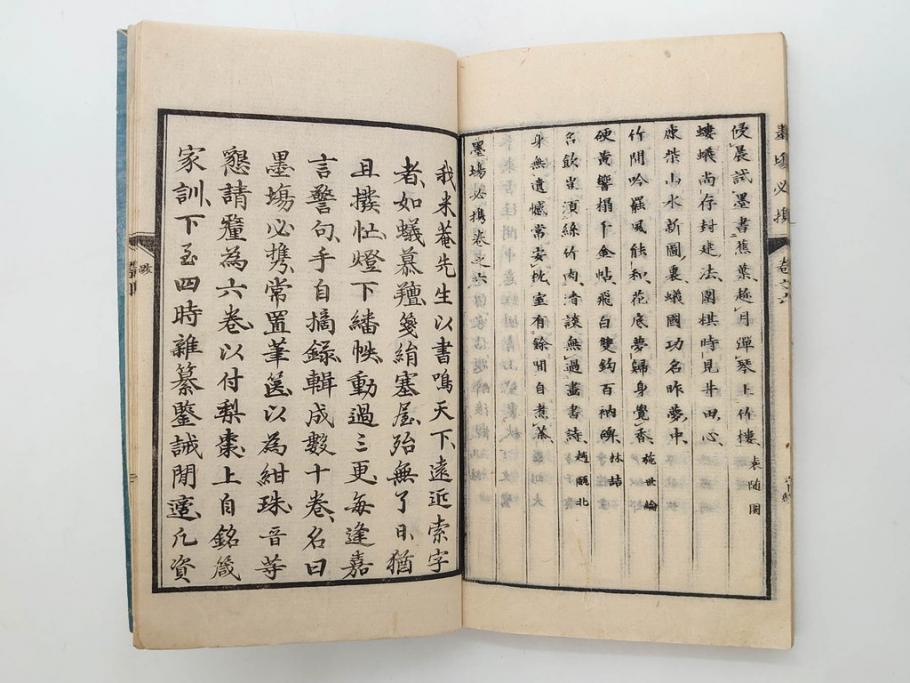 墨場必携 卷之六
侵晨試墨書蕉葉、趁月彈琴上竹樓、袁随園
螻蟻尚存封建法、圍棋時見井田心、
山水新圖裏、蟻國功名昨夢中、
竹間吟 風能和、花底夢歸身覺香、施世綸
硬黄響搨下金帖、飛白雙鈎百衲碑、林喆
名飲豈須絲竹肉、清談無過畫書詩、趙甌北
身無遺憾常安枕、室有餘閒自煮茶、
墨場必携卷之六
我米菴先生以書鳴天下、遠近索字
者、如蟻慕羶、箋絹塞屋、殆無了日、猶
且撥忙、燈下繙帙、動過三更、每逢嘉
言警句、手自摘録、輯成數十卷、名曰
墨場必携、常置筆篋、以為紺珠、音等
懇請釐為六卷、以付梨棗、上自銘箴
家訓、下至四時雜纂、鑒誡閒適、凡資
跋